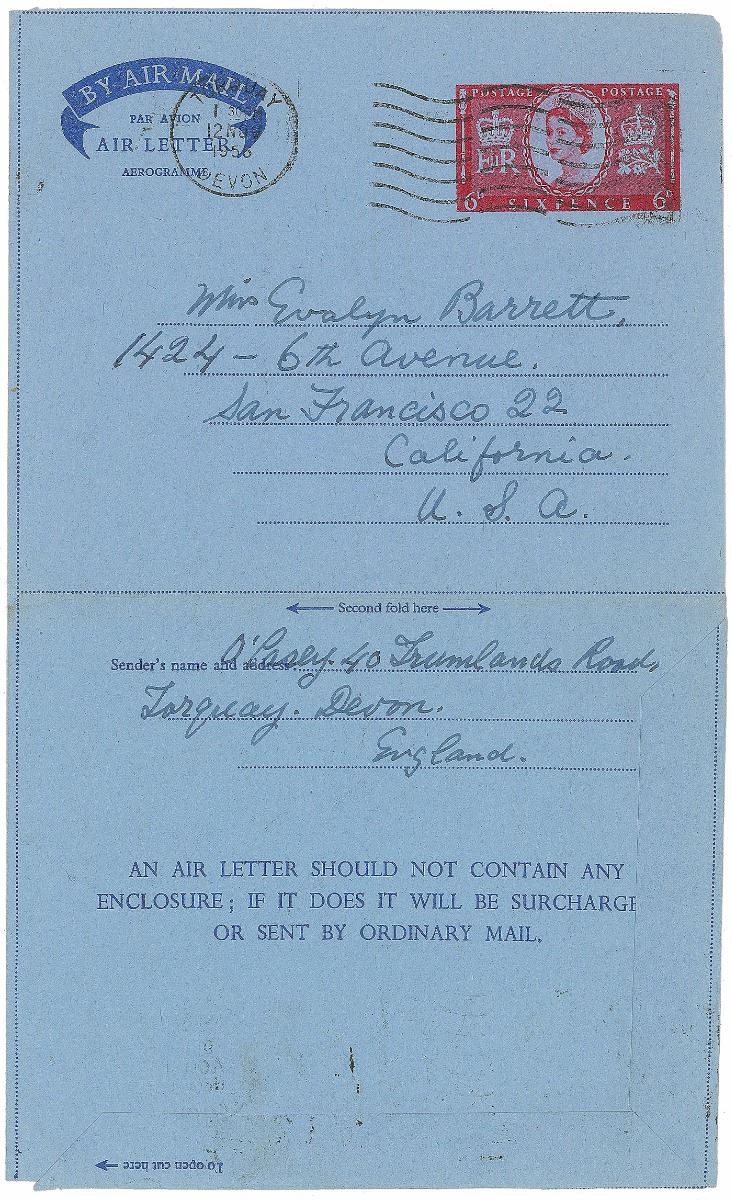 BY AIR MAIL
PAR AVION
AIR LETTER
AEROGRAMME
TORQUAY
12 NOV
1956
DEVON
POSTAGE POSTAGE
E II R
6D SIXPENCE 6D
Miss Evalyn Barrett,
1424 – 6th Avenue.
San Francisco 22
California.
U. S. A.
Second fold here
Sender's name and address: O'Casey. 40 Trumlands Road,
Torquay. Devon.
England.
AN AIR LETTER SHOULD NOT CONTAIN ANY
ENCLOSURE; IF IT DOES IT WILL BE SURCHARGE
OR SENT BY ORDINARY MAIL.
To open cut here